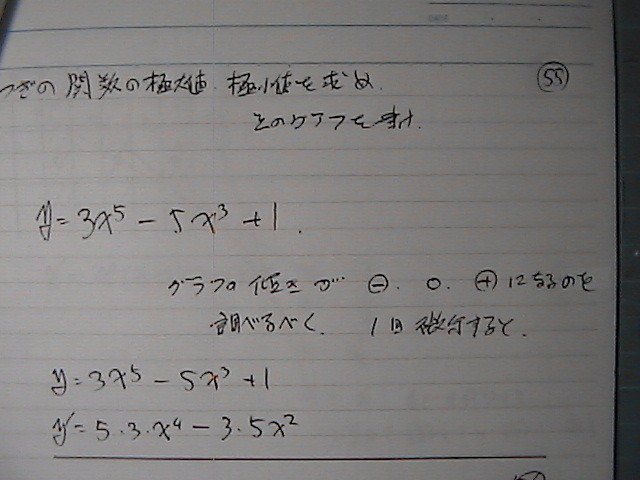 つぎの関数の極大値.極小値を求め.
55
そのグラフを書け.
y=3x⁵-5x³+1.
グラフの傾きが ⊖. 0. ⊕になるのを
調べるべく. 1回微分すると.
y=3x⁵-5x³+1
y'=5·3·x⁴-3·5x²